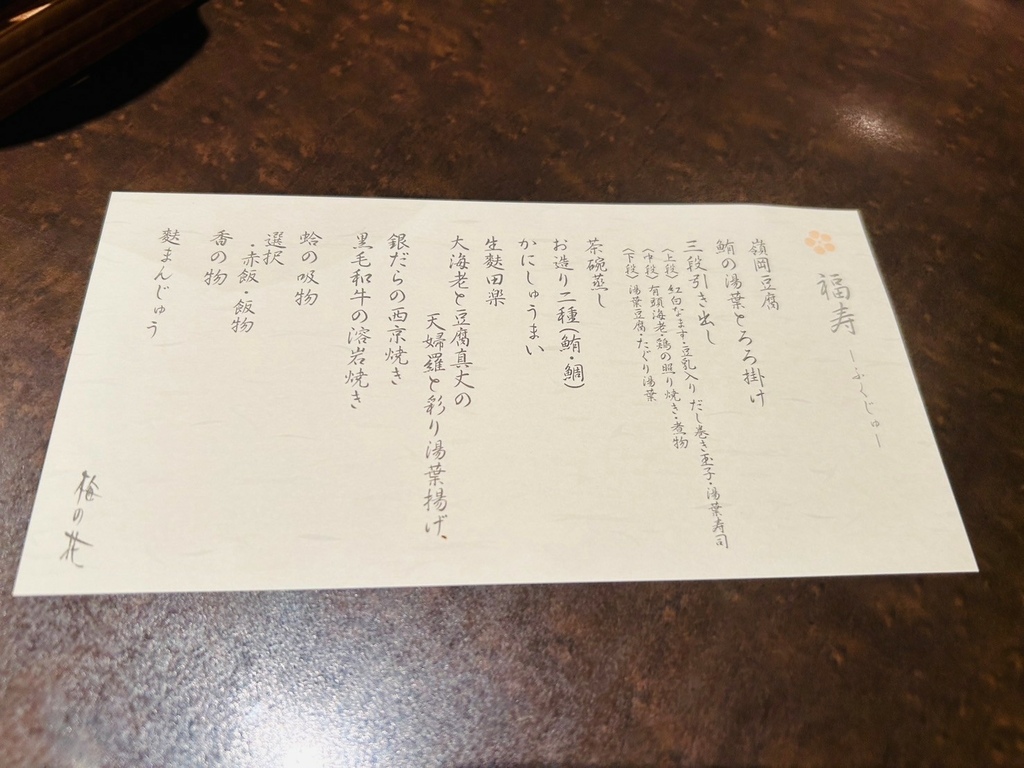 福寿
―ふくじゅ―
嶺岡豆腐
鮪の湯葉とろろ掛け
三段引き出し
〈上段〉紅白なます・豆乳入りだし巻き玉子・湯葉寿司
〈中段〉有頭海老・鶏の照り焼き・煮物
〈下段〉湯葉豆腐・たぐり湯葉
茶碗蒸し
お造り二種(鮪・鯛)
かにしゅうまい
生麩田楽
大海老と豆腐真丈の
天婦羅と彩り湯葉揚げ、
銀だらの西京焼き
黒毛和牛の溶岩焼き
蛤の吸物
選択
・赤飯・飯物
香の物
麩まんじゅう
梅の花